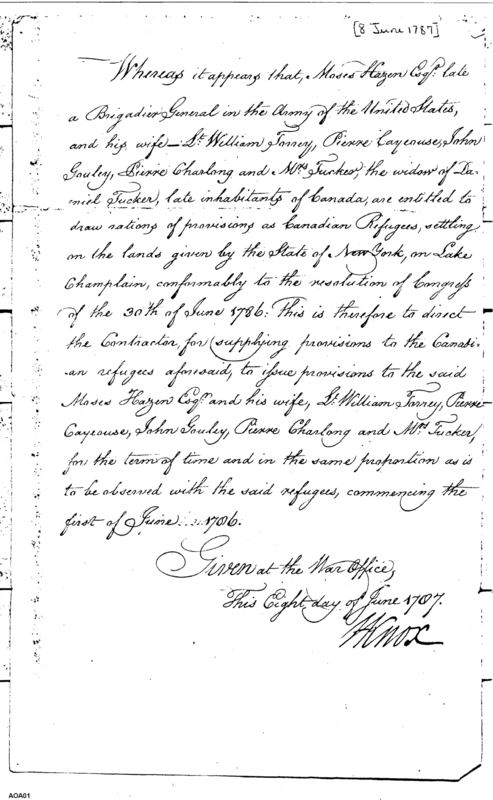 [8 June 1787]
Whereas it appears that, Moses Hazen Esqr. late
a Brigadier General in the Army of the United States,
and his wife — Lt. William Torrey, Pierre Cayeouse, John
Gouley, Pierre Charlong and Mrs. Tucker, the widow of Da-
niel Tucker, late inhabitants of Canada, are entitled to
draw rations of provisions as Canadian Refugees, settling
on the lands given by the State of New York, on Lake
Champlain, conformably to the resolution of Congress
of the 30th of June 1786: This is therefore to direct
the Contractor, for supplying provisions to the Canadi-
-an refugees aforesaid, to issue provisions to the said
Moses Hazen Esqr. and his wife, Lt. William Torrey, Pierre
Cayeouse, John Gouley, Pierre Charlong and Mrs. Tucker,
for the term of time and in the same proportion as is
to be observed with the said refugees, commencing the
first of June 1786.
Given at the War Office,
This Eight day of June 1787.
HKnox
AOA01